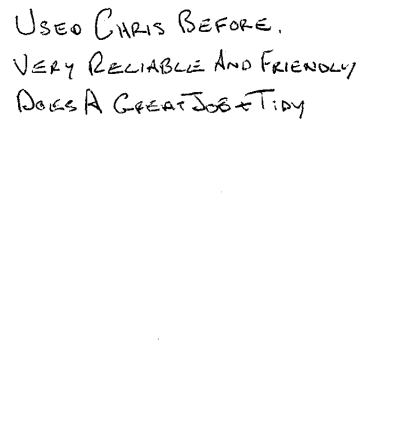 Used Chris Before.
Very Reliable And Friendly
Does A Great Job + Tidy